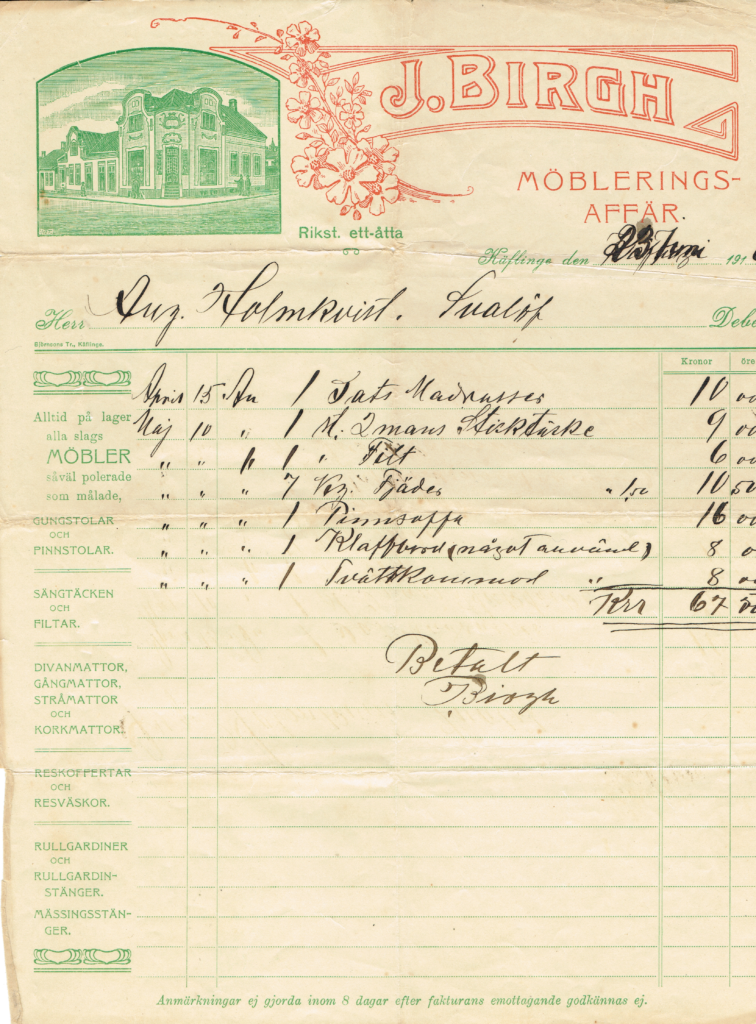 J. BIRGH
MÖBLERINGS-
AFFÄR.
Rikst. ett-åtta
Käflinge den 23 Juni 191
Herr Aug. Holmkvist. Svalöf Debe
Ejbensens Tr., Käflinge.
Kronor öre
April 15 An 1 Sats Madrasser 10 00
Maj 10 " 1 st. 2 mans Sticktäcke 9 00
" " " 1 " Filt 6 00
" " " 7 Kg. Fjäder " 1,50 10 50
" " " 1 Pinnsoffa 16 00
" " " 1 Klaffbord (något använd) 8 00
" " " 1 Tvättkommod " 8 00
Krr 67 50
Betalt
Birgh
Alltid på lager
alla slags
MÖBLER
såväl polerade
som målade,
GUNGSTOLAR
OCH
PINNSTOLAR.
SÄNGTÄCKEN
OCH
FILTAR.
DIVANMATTOR,
GÅNGMATTOR,
STRÅMATTOR
OCH
KORKMATTOR.
RESKOFFERTAR
OCH
RESVÄSKOR.
RULLGARDINER
OCH
RULLGARDIN-
STÄNGER.
MÄSSINGSSTÄN-
GER.
Anmärkningar ej gjorda inom 8 dagar efter fakturans emottagande godkännas ej.